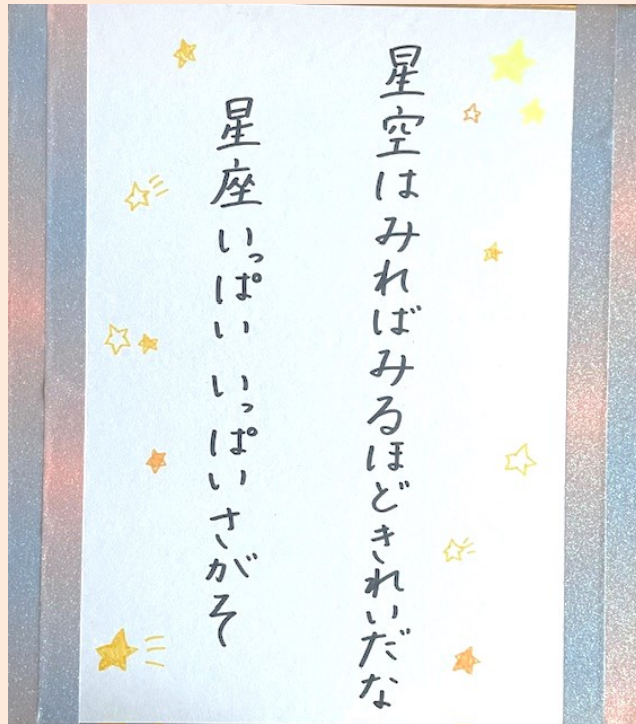 星空はみればみるほどきれいだな
星座いっぱい いっぱいさがそ